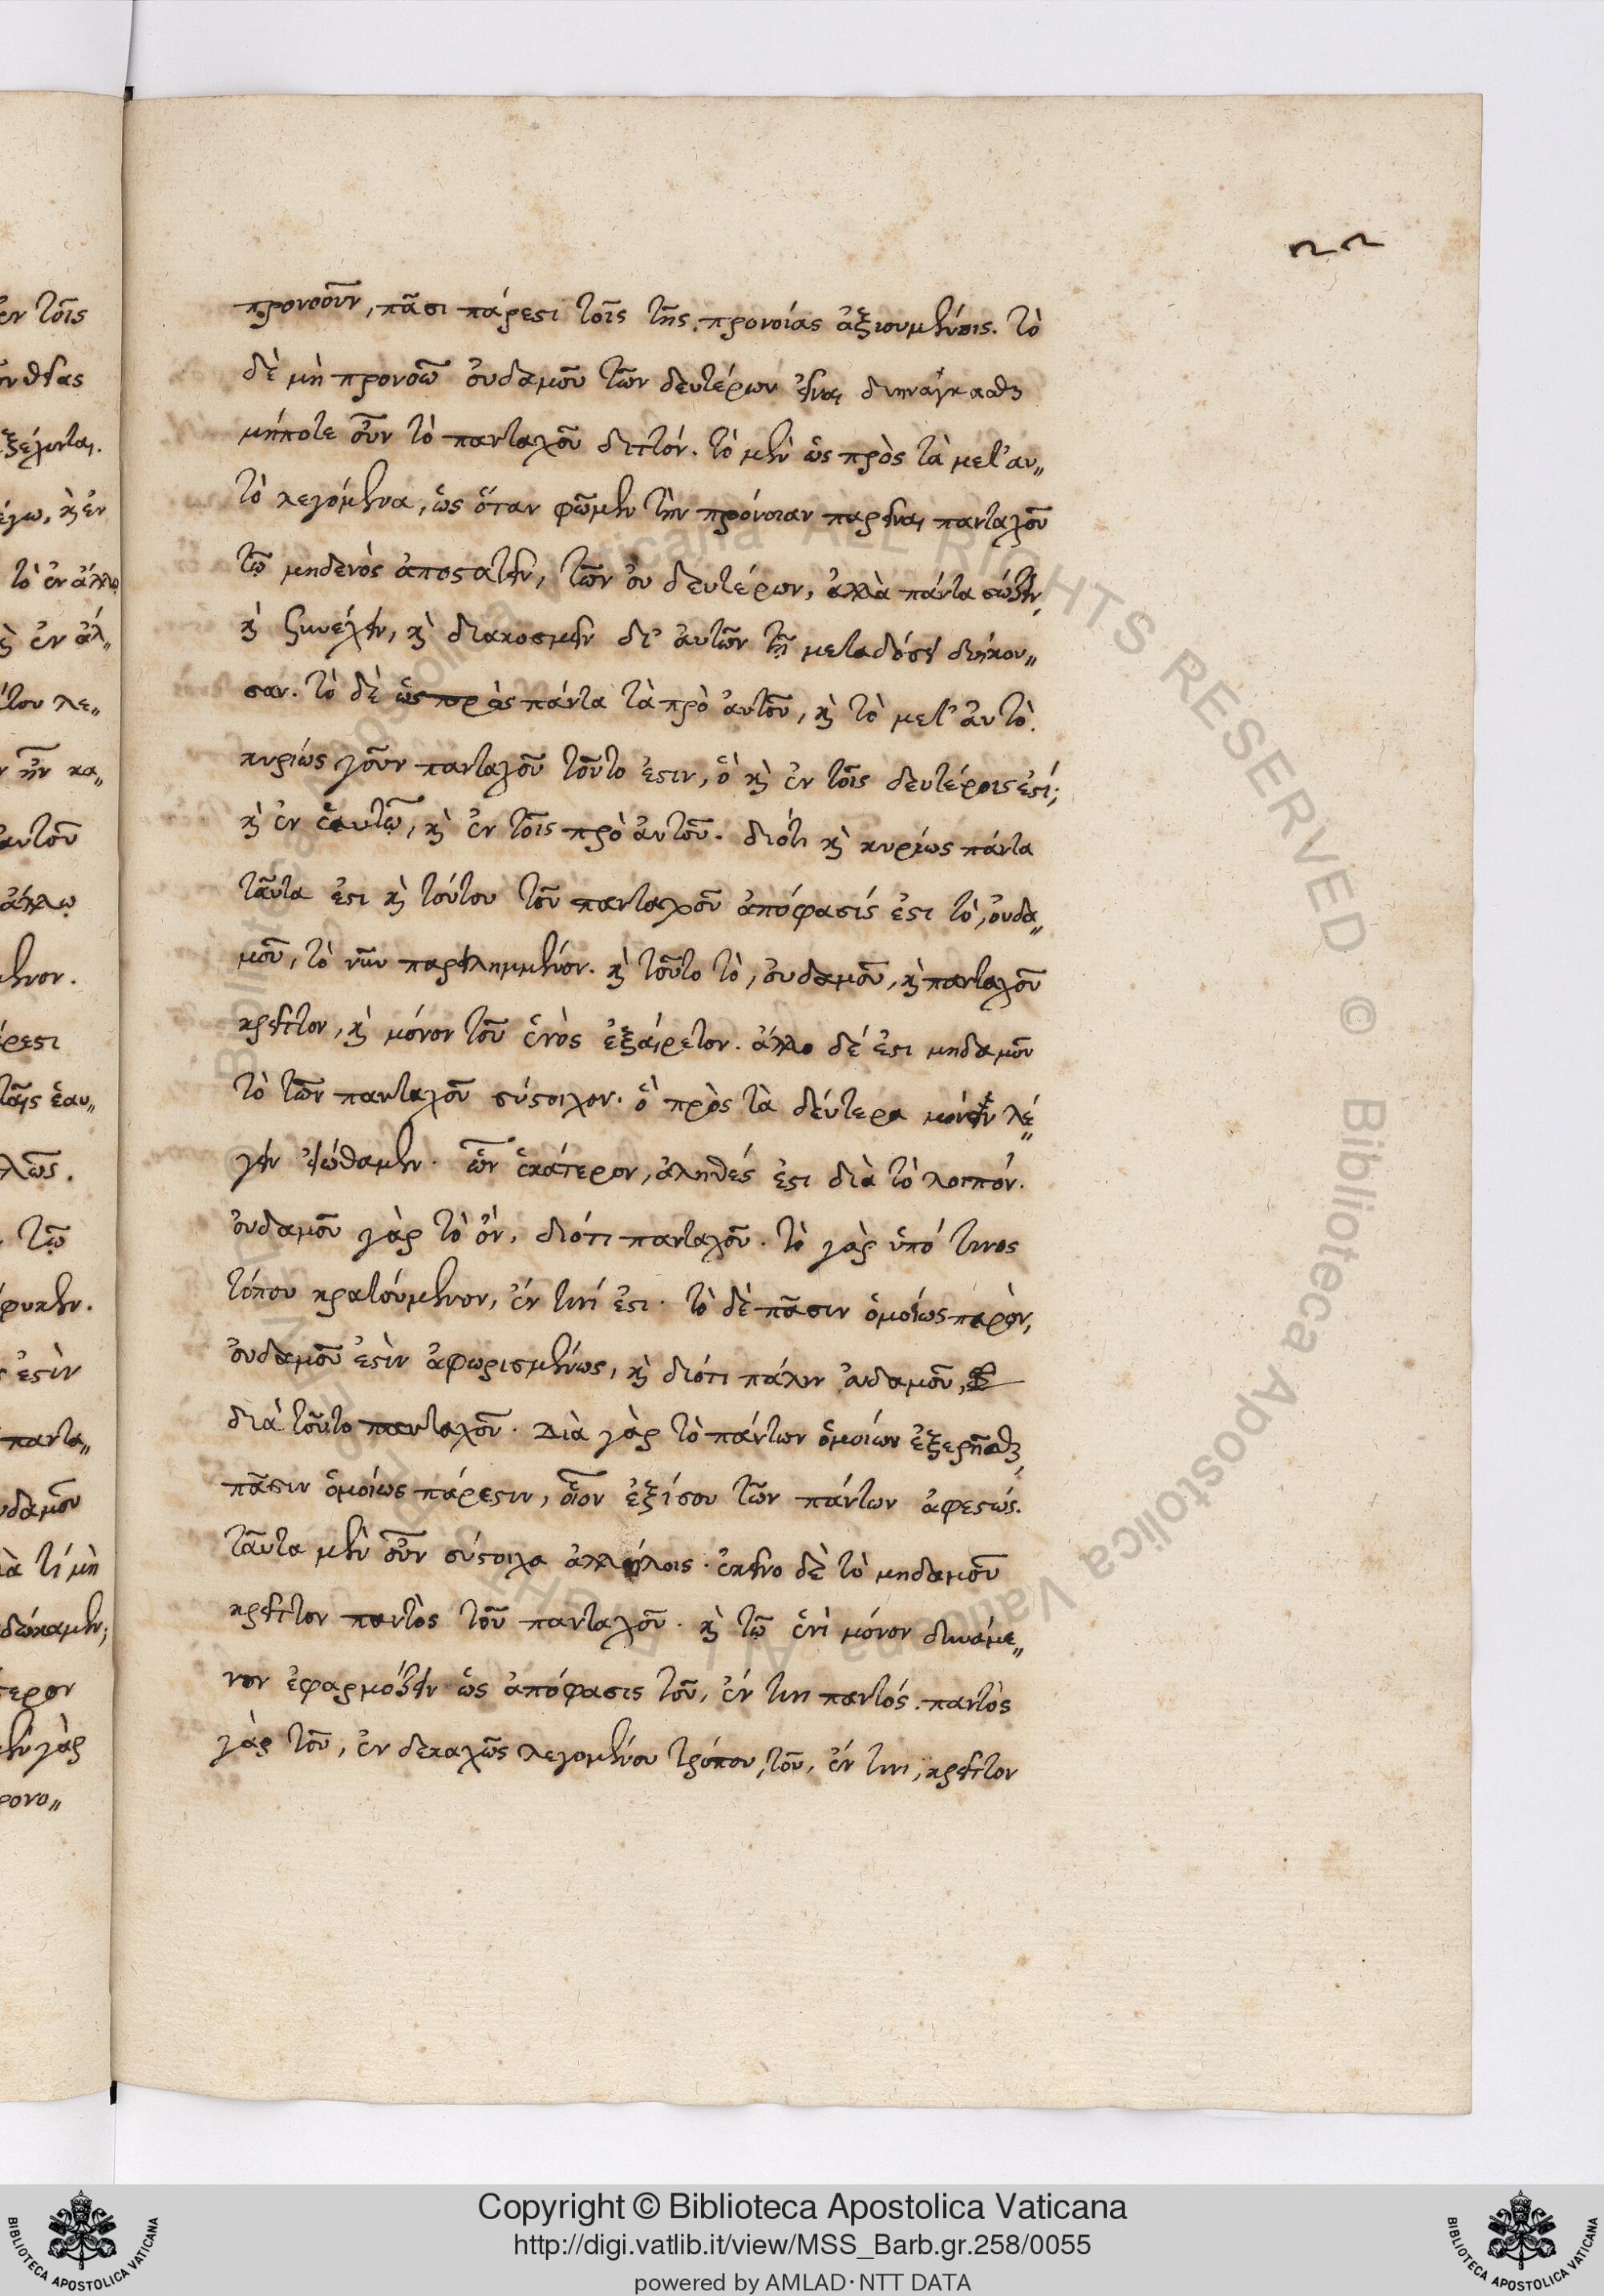 22
προνοοῦν, πᾶσι πάρεστι τοῖς τῆς προνοίας ἀξιουμένοις. τὸ
δὲ μὴ προνοῶ οὐδαμοῦ τῶν δευτέρων εἶναι διηνάγκασθαι
μήποτε οὖν τὸ πανταχοῦ διττόν. τὸ μὲν ὡς πρὸς τὰ μετ' αυ„
τὸ λεγόμενα, ὡς ὅταν φῶμεν τὴν πρόνοιαν παρεῖναι πανταχοῦ
τῷ μηδενὸς ἀποστατεῖν, τῶν οὐ δευτέρων, ἀλλὰ πάντα σώζειν,
κὶ συνέχειν, κὶ διακοσμεῖν δι' αὐτῶν τῇ μεταδόσει διήκου„
σαν. τὸ δὲ ὡς πρὸς πάντα τὰ πρὸ αὐτοῦ, κὶ τὸ μετ' αὐτὸ.
κυρίως γοῦν πανταχοῦ τοῦτο ἐστιν, ὃ κὶ ἐν τοῖς δευτέροις ἐστί;
κὶ ἐν ἑαυτῷ, κὶ ἐν τοῖς πρὸ αὐτοῦ. διότι κὶ κυρίως πάντα
ταῦτα ἐστι κὶ τούτου τοῦ πανταχοῦ ἀπόφασίς ἐστι τὸ, οὐδα„
μοῦ, τὸ νῦν παρειλημμένον. κὶ τοῦτο τὸ, οὐδαμοῦ, κὶ πανταχοῦ
κρεῖττον, κὶ μόνον τοῦ ἑνὸς ἐξαίρετον. ἄλλο δέ ἐστι μηδαμοῦ
τὸ τῶν πανταχοῦ σύστοιχον. ὃ πρὸς τὰ δεύτερα λέ„
γειν εἰώθαμεν. ὧν ἑκάτερον, ἀληθές ἐστι διὰ τὸ λοιπόν.
οὐδαμοῦ γὰρ τὸ ὄν, διότι πανταχοῦ. τὸ γὰρ ὑπό τινος
τόπου κρατούμενον, ἔν τινί ἐστι. τὸ δὲ πᾶσιν ὁμοίως παρὸν,
οὐδαμοῦ ἐστὶν ἀφωρισμένως, κὶ διότι πάλιν οὐδαμοῦ,
διὰ τοῦτο πανταχοῦ. Διὰ γὰρ τὸ πάντων ὁμοίων ἐξῃρῆσθαι,
πᾶσιν ὁμοίως πάρεστιν, οἷον ἐξίσου τῶν πάντων ἀφεστώς.
ταῦτα μὲν οὖν σύστοιχα ἀλλήλοις. ἐκεῖνο δὲ τὸ μηδαμοῦ
κρεῖττον παντὸς τοῦ πανταχοῦ. κὶ τῷ ἑνὶ μόνον δυνάμε„
νον ἐφαρμόζειν ὡς ἀπόφασις τοῦ, ἔν τινι παντός. παντὸς
γὰρ τοῦ, ἐν δεκαχῶς λεγομένου τρόπου, τοῦ, ἔν τινι, κρεῖττον
Copyright © Biblioteca Apostolica Vaticana
http://digi.vatlib.it/view/MSS_Barb.gr.258/0055
powered by AMLAD·NTT DATA